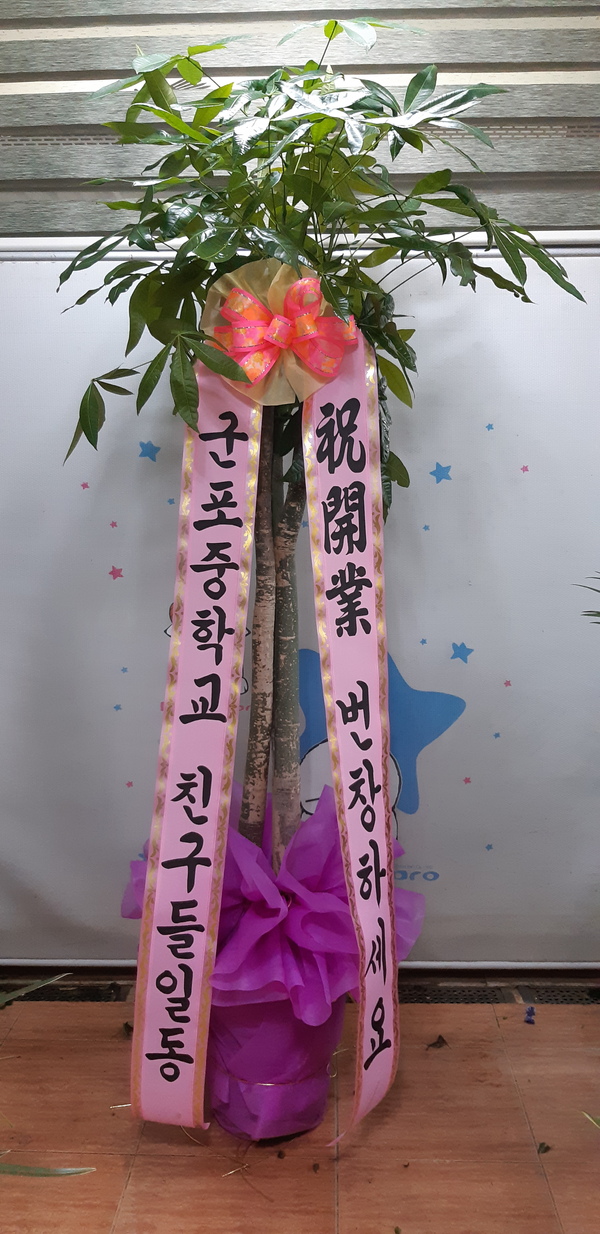 군포중학교 친구들일동
祝開業 번창하세요
aro